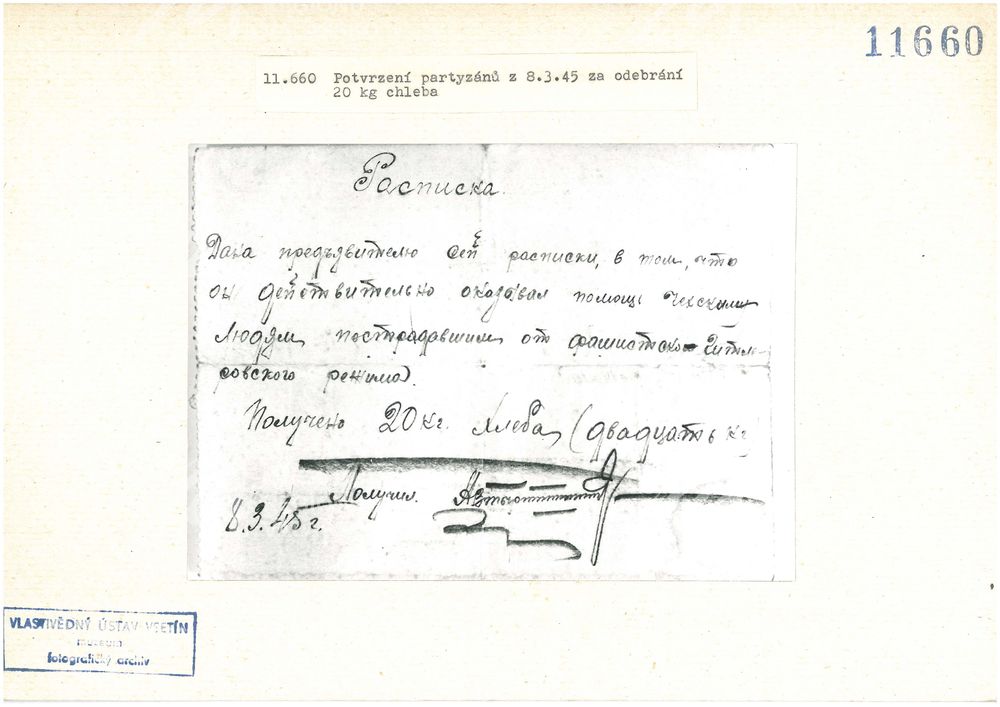 11660
11.660 Potvrzení partyzánů z 8.3.45 za odebrání
20 kg chleba
Расписка.
Дана предъявителю сей расписки, в том, что
он действительно оказывал помощь Чехским
людям, пострадавшим от фашистского Гитле-
ровского режима.
Получено 20 кг. хлеба (двадцать кг
Получил.
8.3.45 г.
VLASTIVĚDNÝ ÚSTAV VSETÍN
museum
fotografický archiv